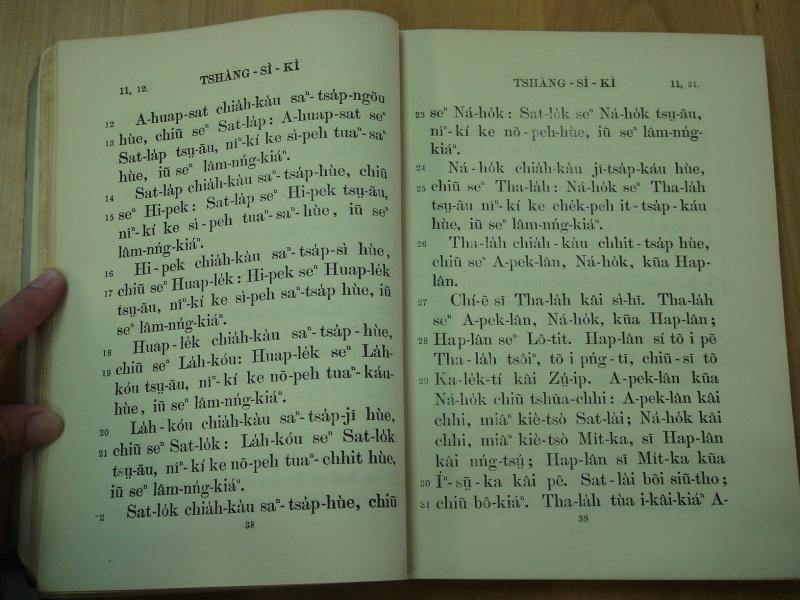 11, 12. TSHÀNG - SÌ - KÌ
12 A-huap-sat chiа̍h-kàu saⁿ-tsa̍p-ngõu
13 hùe, chiũ seⁿ Sat-la̍p: A-huap-sat seⁿ
Sat-la̍p tsṳ-āu, niⁿ-kí ke sì-peh tuaⁿ-saⁿ
hùe, iũ seⁿ lâm-nńg-kiáⁿ.
14 Sat-la̍p chia̍h-kàu saⁿ-tsa̍p-hùe, chiũ
15 seⁿ Hi-pek: Sat-la̍p seⁿ Hi-pek tsṳ-āu,
niⁿ-kí ke sì-peh tuaⁿ-saⁿ-hùe, iũ seⁿ
lâm-nńg-kiáⁿ.
16 Hi-pek chia̍h-kàu saⁿ-tsa̍p-sì hùe,
17 chiũ seⁿ Huap-le̍k: Hi-pek seⁿ Huap-le̍k
tsṳ-āu, niⁿ-kí ke sì-peh saⁿ-tsa̍p hùe, iũ
seⁿ lâm-nńg-kiáⁿ.
18 Huap-le̍k chia̍h-kàu saⁿ-tsa̍p-hùe,
19 chiũ seⁿ La̍h-kóu: Huap-le̍k seⁿ La̍h-
kóu tsṳ-āu, niⁿ-kí ke nõ-peh tuaⁿ-káu-
hùe, iũ seⁿ lâm-nńg-kiáⁿ.
20 La̍h-kóu chia̍h-kàu saⁿ-tsa̍p-jī hùe,
21 chiũ seⁿ Sat-lo̍k: La̍h-kóu seⁿ Sat-lo̍k
tsṳ-āu, niⁿ-kí ke nõ-peh tuaⁿ-chhit hùe,
iũ seⁿ lâm-nńg-kiáⁿ.
Sat-lo̍k chia̍h-kàu saⁿ-tsa̍p-hùe, chiũ
38
TSHÀNG - SÌ - KÌ 11, 31.
23 seⁿ Ná-ho̍k: Sat-lo̍k seⁿ Ná-ho̍k tsṳ-āu,
niⁿ-kí ke nõ-peh-hùe, iũ seⁿ lâm-nńg-
kiáⁿ.
24 Ná-ho̍k chia̍h-kàu jī-tsa̍p-káu hùe,
25 chiũ seⁿ Tha-la̍h: Ná-ho̍k seⁿ Tha-la̍h
tsṳ-āu niⁿ-kí ke che̍k-peh it-tsa̍p-káu
hùe, iũ seⁿ lâm-nńg-kiáⁿ.
26 Tha-la̍h chia̍h-kàu chhit-tsa̍p hùe,
chiũ seⁿ A-pek-lân, Ná-ho̍k, kũa Hap-
lân.
27 Chí-ē sĩ Tha-la̍h kâi sì-hĩ. Tha-la̍h
seⁿ A-pek-lân, Ná-ho̍k, kũa Hap-lân;
28 Hap-lân seⁿ Lô-tit. Hap-lân sí tõ i pē
Tha-la̍h tsôiⁿ, tõ i pńg-tī, chiũ-sĩ tõ
29 Ka-le̍k-tí kâi Zṳ́-ip. A-pek-lân kũa
Ná-ho̍k chiũ tshūa-chhi: A-pek-lân kâi
chhi, miâⁿ kiè-tsò Sat-lài; Ná-ho̍k kâi
chhi, miâⁿ kiè-tsò Mit-ka, sĩ Hap-lân
kâi nńg-tsṳ́; Hap-lân sĩ Mit-ka kũa
30 Íⁿ-sṳ̄-ka kâi pē. Sat-lài bõi siũ-tho;
31 chiũ bô-kiáⁿ. Tha-la̍h tùa i-kâi-kiáⁿ A-
39